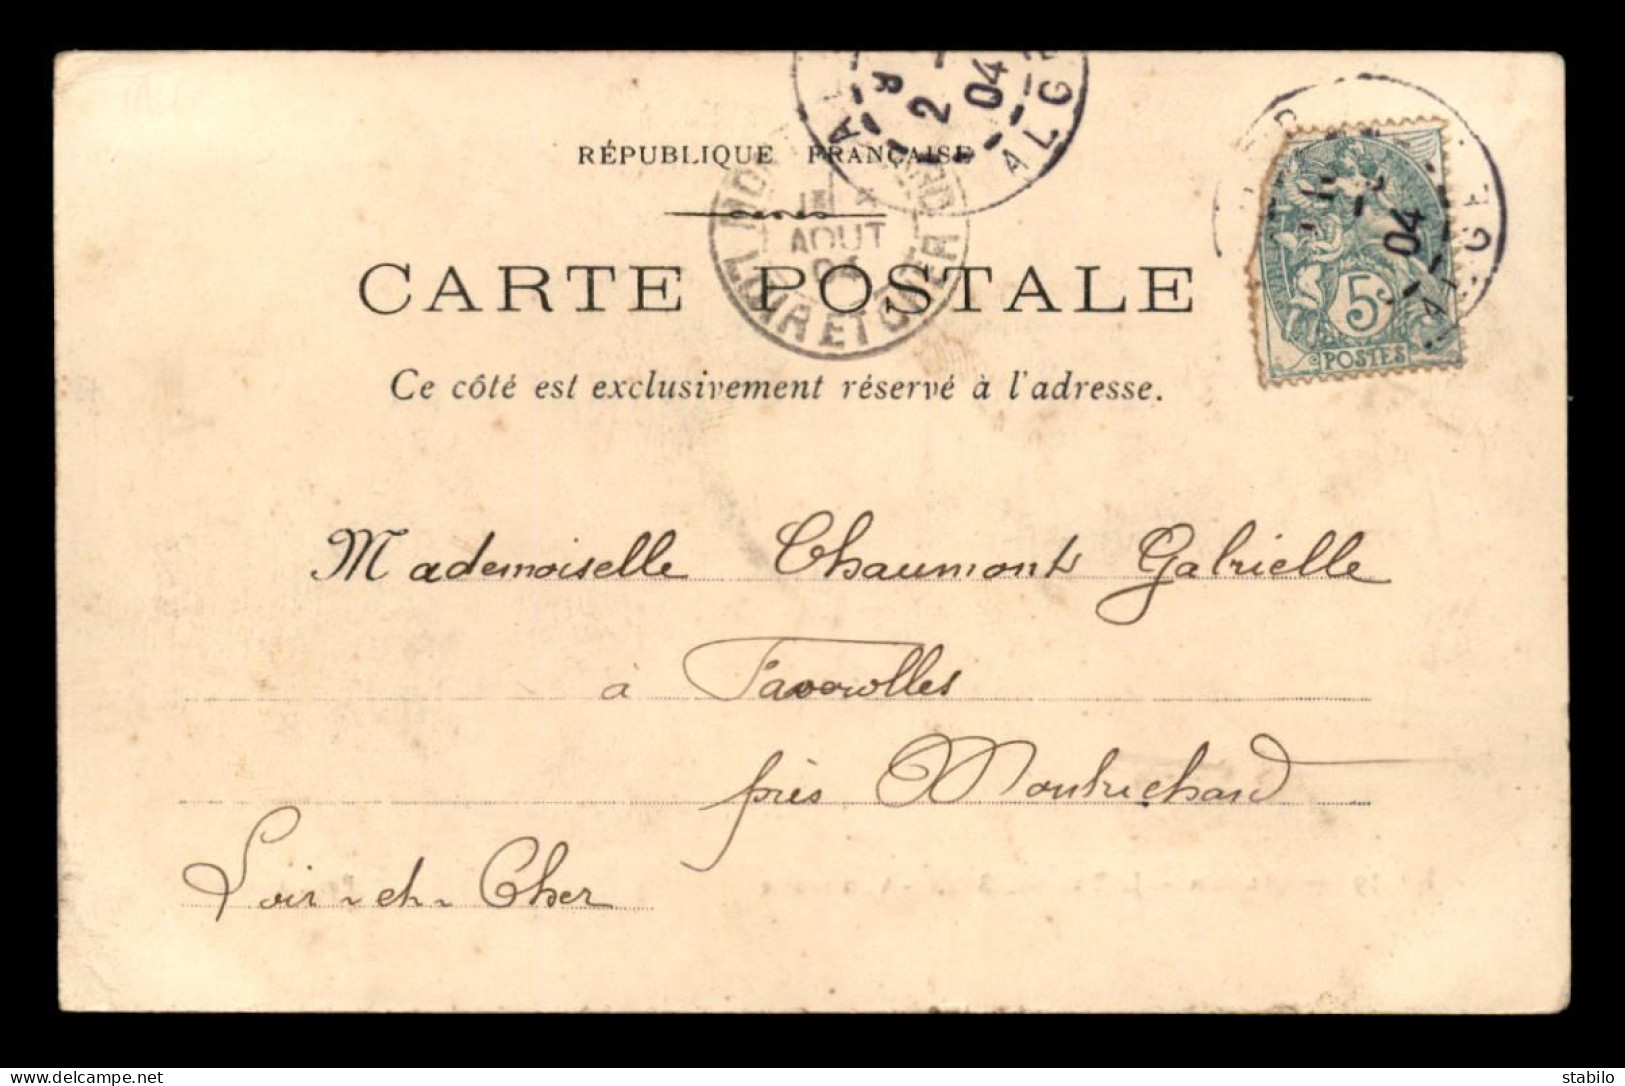 RÉPUBLIQUE FRANÇAISE
AOUT
04
LOIR ET CHER
2
04
ALG
04
ALGE
5c
POSTES
CARTE POSTALE
Ce côté est exclusivement réservé à l'adresse.
Mademoiselle Chaumont Gabrielle
à Faverolles
près Montrichard
Loir-et-Cher
stabilo